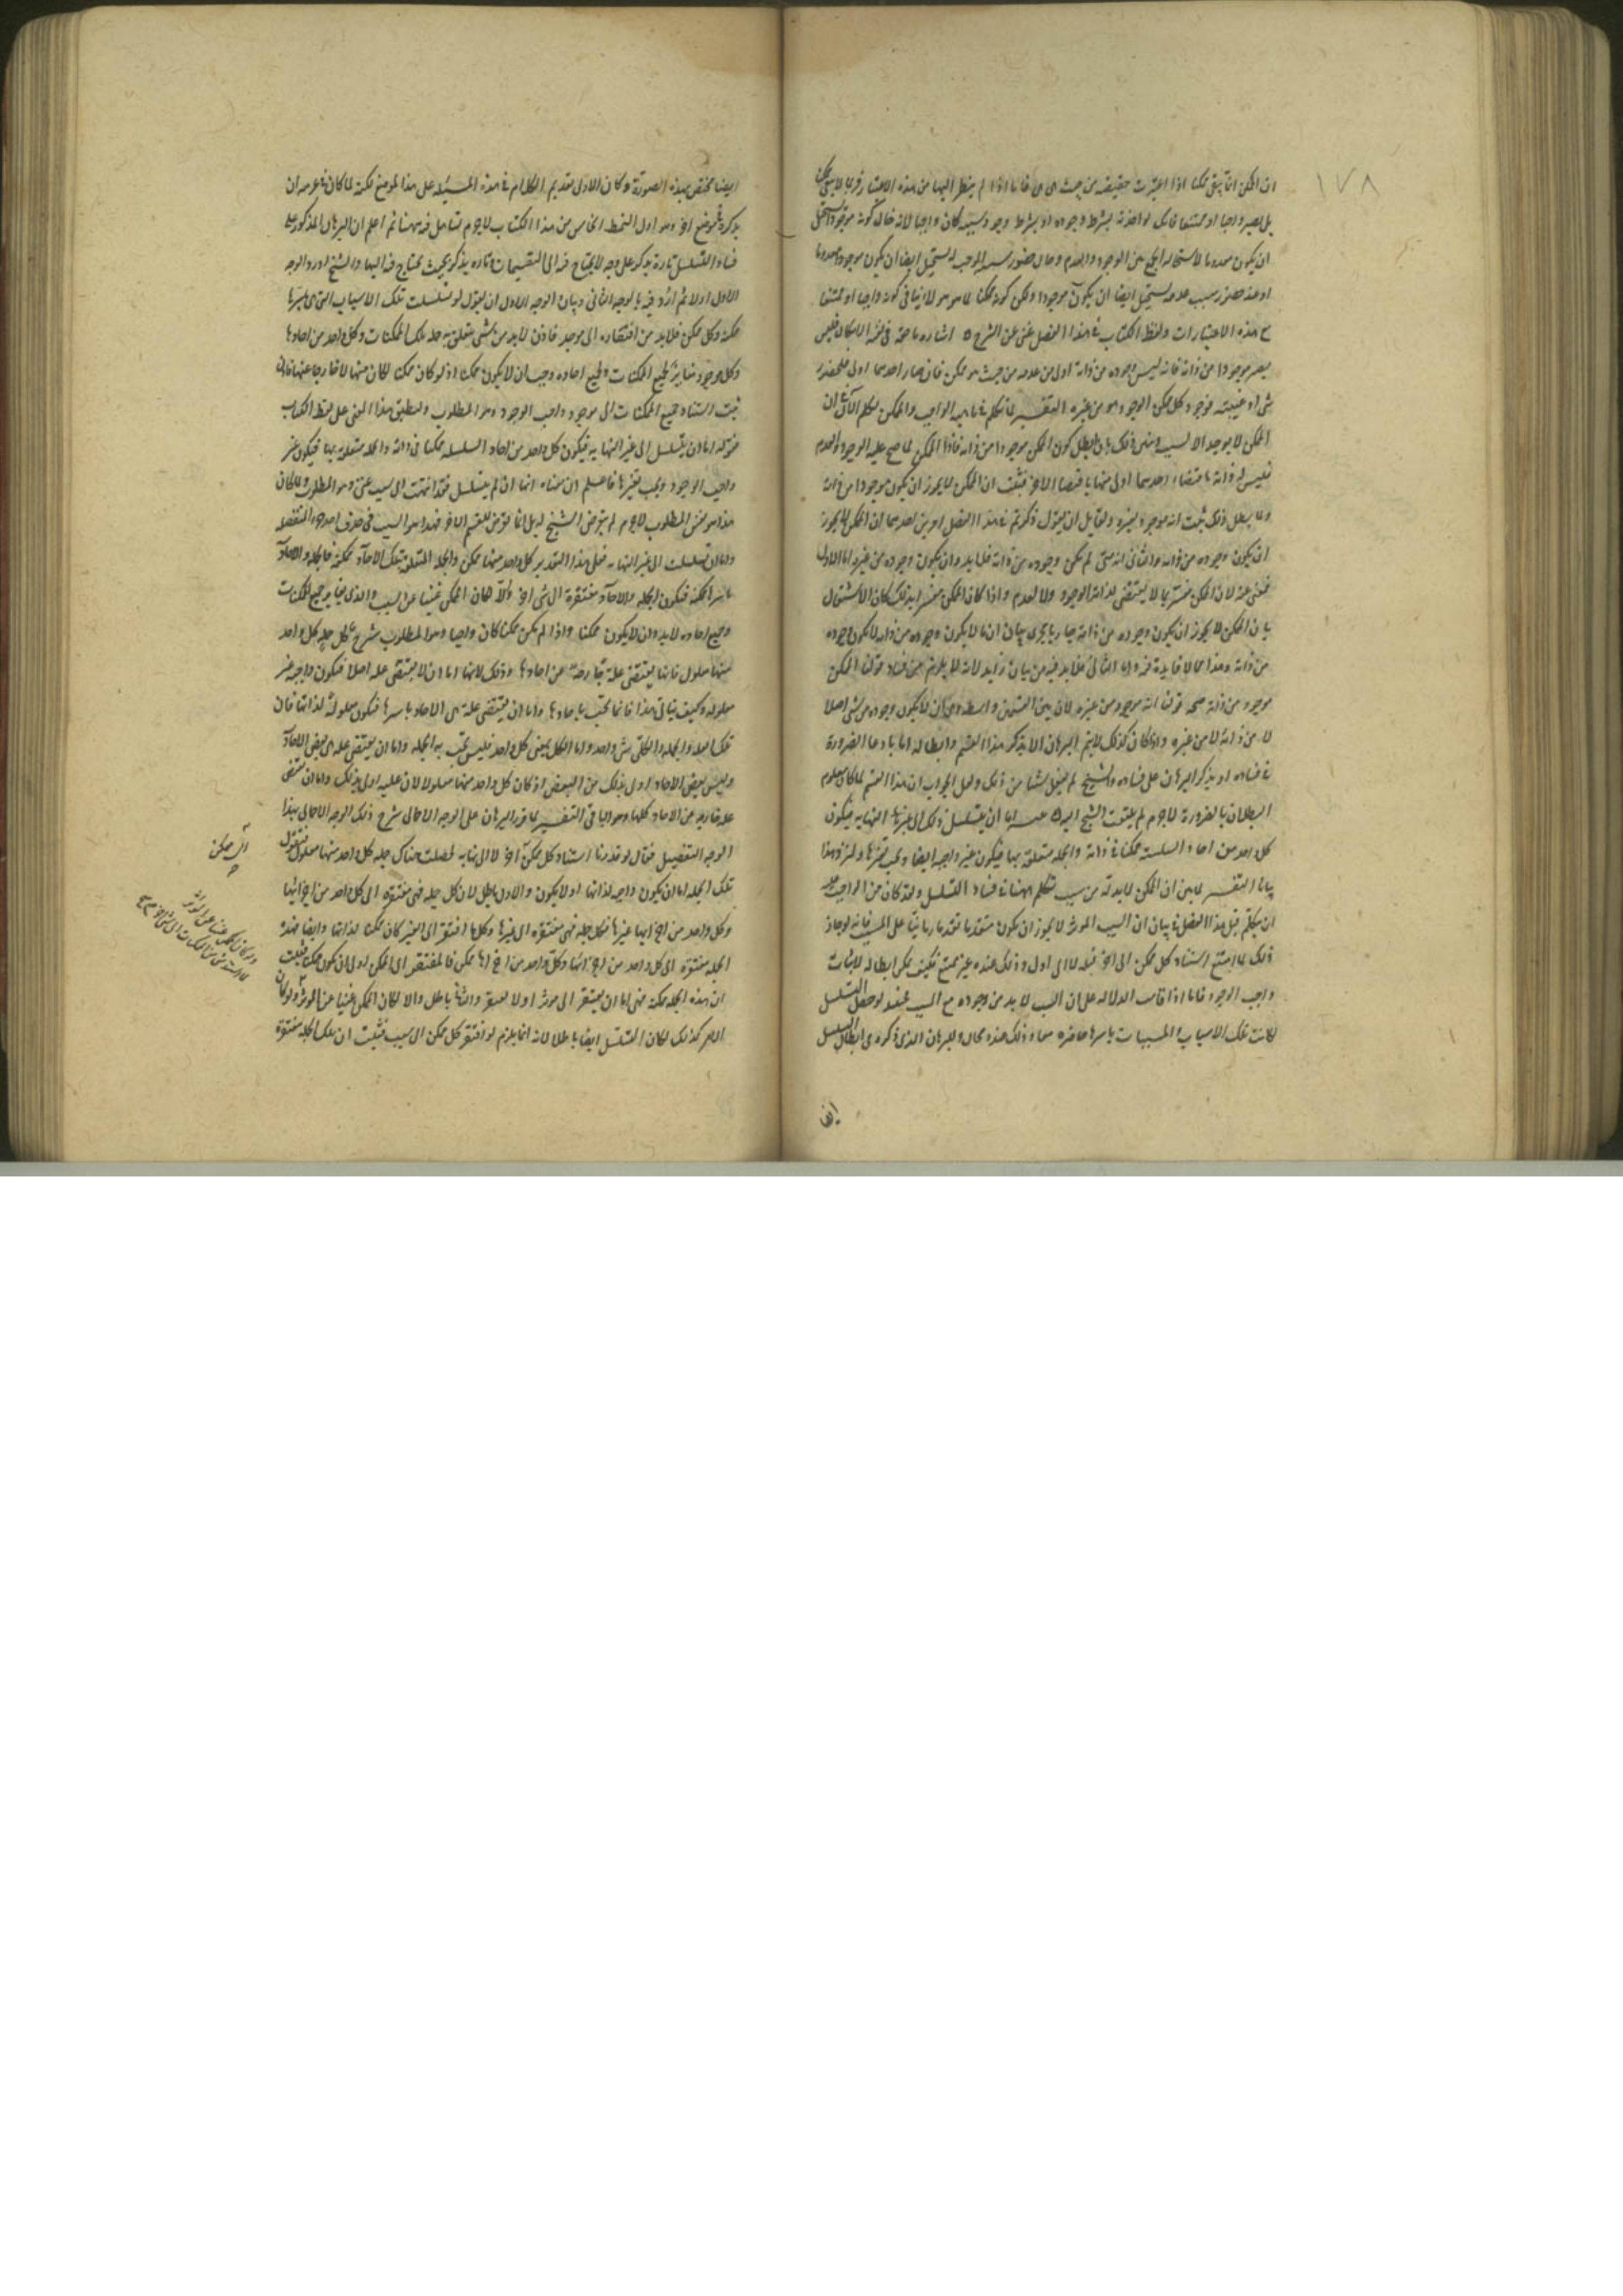 ١٧٨
ان الممكن انما يبقى ممكنا اذا اعتبرت حقيقته من حيث هى هى فاما اذا لم ينظر اليها من هذه الاعتبار فربما لا يبقى ممكنا
بل يصير واجبا او ممتنعا فانك لو اخذته بشرط وجوده او بشرط وجود سببه كان واجبا لانه حال كونه موجودا يستحيل
ان يكون معدوما لاستحالة الجمع بين الوجود والعدم وحال حضور سببه الموجب له يستحيل ايضا ان يكون موجودا معدوما
او عند حضور سبب عدمه يستحيل ايضا ان يكون موجودا ولكن كونه ممكنا لما هو هو لا ينافى كونه واجبا او ممتنعا
مع هذه الاعتبارات ولفظ الكتاب فى هذا الفصل غنى عن الشرح اشارة ما حقه فى نفسه الامكان فليس
يصير موجودا من ذاته فانه ليس وجوده من ذاته اولى من عدمه من حيث هو ممكن فان صار احدهما اولى فلحضور
شئ او غيبته فوجود كل ممكن الوجود هو من غيره التفسير لما تكلم فى ماهية الواجب والممكن تكلم الآن فى ان
الممكن لا يوجد الا لسبب وبنى ذلك بان ابطل كون الممكن موجودا من ذاته فاذا الممكن لما صح عليه الوجود والعدم
فليس له ذاته باقتضاء احدهما اولى منها باقتضاء الاخر فثبت ان الممكن لا يجوز ان يكون موجودا من ذاته
ولما بطل ذلك ثبت انه موجود بغيره ولقايل ان يقول ذكرتم فى هذا الفصل امرين احدهما ان الممكن لا يجوز
ان يكون وجوده من ذاته والثانى انه متى لم يكن وجوده من ذاته فلا بد وان يكون وجوده من غيره اما الاول
فغنى عنه لان الممكن مفسر بما لا يقتضى لذاته الوجود ولا العدم واذا كان الممكن مفسرا بذلك كان الاشتغال
بان الممكن لا يجوز ان يكون وجوده من ذاته جاريا مجرى بيان ان ما لا يكون وجوده من ذاته لا يكون وجوده
من ذاته وهذا مما لا فايدة فيه واما الثانى فلا بد فيه من بيان زايد لانه لا يلزم من فساد قولنا الممكن
موجود من ذاته صحة قولنا انه موجود من غيره لان بين القسمين واسطة وهى ان لا يكون وجوده من شئ اصلا
لا من ذاته ولا من غيره واذا كان كذلك لا يتم البرهان الا بذكر هذا القسم وابطاله اما بادعا الضرورة
فى فساده او بذكر البرهان على فساده والشيخ لم يفعل شيئا من ذلك ولعل الجواب ان هذا القسم لما كان معلوم
البطلان بالضرورة لا جرم لم يلتفت الشيخ اليه تنبيه اما ان يتسلسل ذلك الى غير النهاية فيكون
كل واحد من احاد السلسلة ممكنا فى ذاته والجملة متعلقة بها فيكون غير واجبة ايضا وتجب بغيرها ولنزد هذا
بيانا التفسير لما بين ان الممكن لا بد له من سبب تكلم ههنا فى فساد التسلسل وقد كان من الواجب عليه
ان يتكلم قبل هذا الفصل فى بيان ان السبب المؤثر لا يجوز ان يكون متقدما تقدما زمانيا على المسبب فانه لو جاز
ذلك لما امتنع استناد كل ممكن الى اخر قبله لا الى اول وذلك عنده غير ممتنع فكيف يمكن ابطاله لاثبات
واجب الوجود فاما اذا قامت الدلالة على ان السبب لا بد من وجوده مع المسبب فعند لو حصل التسلسل
لكانت تلك الاسباب والمسببات باسرها حاضرة معا وذلك عنده محال والبرهان الذى ذكره فى ابطال التسلسل
ايضا
ايضا مختص بهذه الصورة وكان الاولى تقديم الكلام فى هذه المسئلة على هذا الموضع لكنه لما كان فى عزمه ان
يذكره فى موضع اخر وهو اول النمط الخامس من هذا الكتاب لا جرم تساهل فيه ههنا ثم اعلم ان البرهان المذكور على
فساد التسلسل تارة يذكر على وجه لا يحتاج فيه الى التقسيمات وتارة يذكر بحيث يحتاج فيه اليها والشيخ اورد الوجه
الاول اولا ثم اردفه بالوجه الثانى وبيان الوجه الاول ان يقول لو تسلسلت تلك الاسباب التى هى باسرها
ممكنة وكل ممكن فلا بد من افتقاره الى موجد فاذن لا بد من شئ يتعلق به جملة تلك الممكنات وكل واحد من احادها
وكل موجود مغاير لجميع الممكنات ولجميع احاده وجب ان لا يكون ممكنا اذ لو كان ممكنا لكان منها لا خارجا عنها فاذن
ثبت استناد جميع الممكنات الى موجود واجب الوجود وهو المطلوب ولنطبق هذا المعنى على لفظ الكتاب
قوله اما ان يتسلسل الى غير النهاية فيكون كل واحد من احاد السلسلة ممكنا فى ذاته والجملة متعلقة بها فيكون غير
واجب الوجود وتجب بغيرها فاعلم ان معناه انها ان لم يتسلسل فقد انتهت الى سبب غنى وهو المطلوب ولما كان
هذا هو نفس المطلوب لا جرم لم يتعرض الشيخ له بل انما تعرض للقسم الاخر فهذا هو السبب فى حذف احد جزئى المنفصلة
واما ان تسلسلت الى غير النهاية فعلى هذا التقدير كل واحد منها ممكن والجملة المتعلقة بتلك الآحاد ممكنة فالجملة والآحاد
باسرها ممكنة فتكون الجملة والآحاد مفتقرة الى شئ اخر والا لكان الممكن غنيا عن السبب والذى يغاير جميع الممكنات
وجميع احاده لا بد وان لا يكون ممكنا واذا لم يكن ممكنا كان واجبا وهو المطلوب شرح كل جملة كل واحد
منها معلول فانها يقتضى علة خارجة عن احادها وذلك لانها اما ان لا يقتضى علة اصلا فتكون واجبة غير
معلولة وكيف يتأتى هذا فانما تجب باحادها واما ان يقتضى علة هى الاحاد باسرها فتكون معلولة لذاتها فان
تلك الجملة والكل شئ واحد واما الكل بمعنى كل واحد فليس تجب به الجملة واما ان يقتضى علة هى بعض الآحاد
وليس بعض الاحاد اولى بذلك من البعض اذ كان كل واحد منها معلولا لان علته اولى بذلك واما ان تقتضى
علة خارجة عن الاحاد كلها وهو الباقى التفسير لما قرر البرهان على الوجه الاجمالى شرح ذلك الوجه الاجمالى بهذا
الوجه التفصيلى فقال لو قدرنا استناد كل ممكن الى اخر لا الى نهاية لحصلت هناك جملة كل واحد منها معلول فنقول
تلك الجملة اما ان يكون واجبة لذاتها او لا يكون والاول باطل لان كل جملة فهى مفتقرة الى كل واحد من اجزائها
وكل واحد من اجزائها غيرها فكل جملة فهى مفتقرة الى غيرها وكل ما افتقر الى الغير كان ممكنا لذاته وايضا فهذه
الجملة مفتقرة الى كل واحد من اجزائها وكل واحد من اجزائها ممكن فالمفتقر الى الممكن اولى ان يكون ممكنا فثبت
ان هذه الجملة ممكنة فهى اما ان يفتقر الى مؤثر او لا يفتقر والثانى باطل والا لكان الممكن غنيا عن المؤثر ولو كان
الامر كذلك لكان التسلسل ايضا باطلا لانه انما يلزم لو افتقر كل ممكن الى سبب فثبت ان تلك الجملة مفتقرة